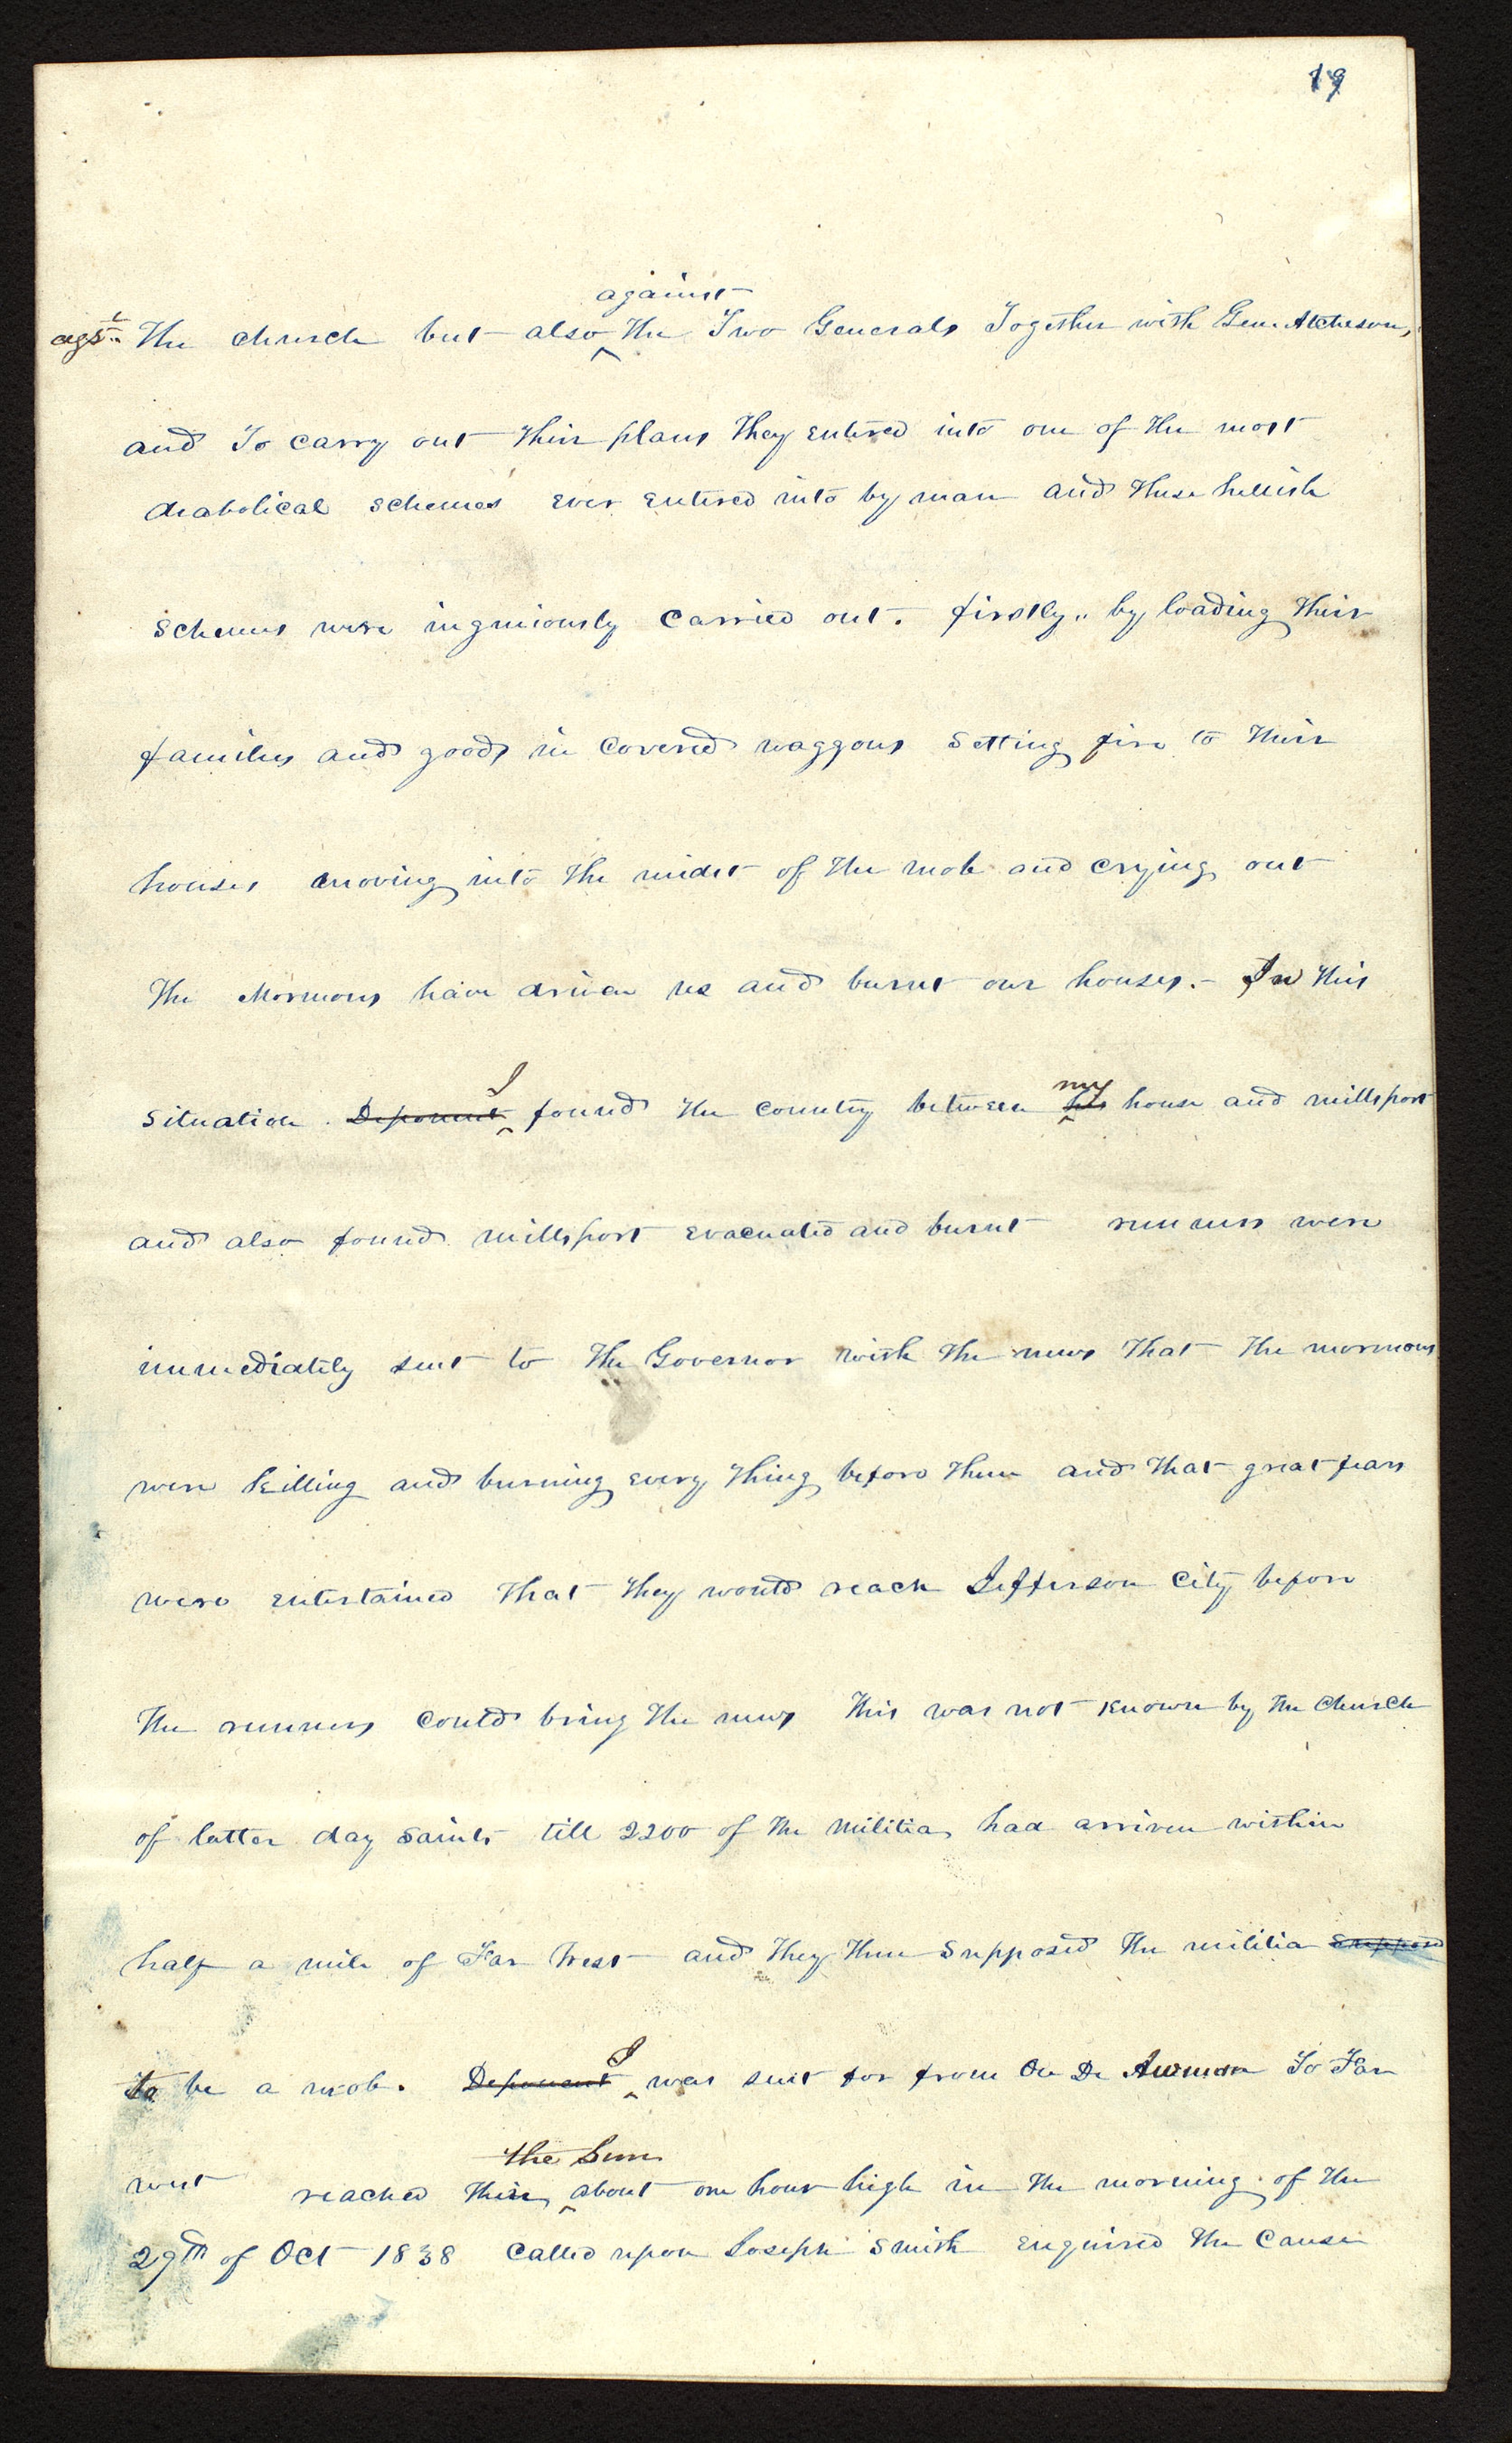 19
against
agst. The church but also ^ the Two Generals Together with Gen. Atcheson,
and To carry out their plans they entered into one of the most
diabolical schemes ever entered into by man and these hellish
schemes were ingeniously carried out. firstly,, by loading their
families and goods in Covered waggons setting fire to their
houses moving into the midst of the mob and crying out
The Mormons have driven us and burnt our houses.- In this
I my
situation. Deponent ^ found the country between his ^ house and millsport
and also found millsport evacuated and burnt runners were
immediately sent to the Governor with the news that the mormons
were killing and burning every thing before them and that great fears
were entertained that they would reach Jefferson City before
The runners could bring the news This was not known by the Church
of latter day Saints till 2200 of the Militia had arriven within
half a mile of Far West and they then supposed the militia suppose
to be a mob. Deponent ^ I was sent for from On Di Awman To Far
the Sun
west reached their ^ about one hour high in the morning of the
29th of Oct 1838 Called upon Joseph Smith enquired the Cause